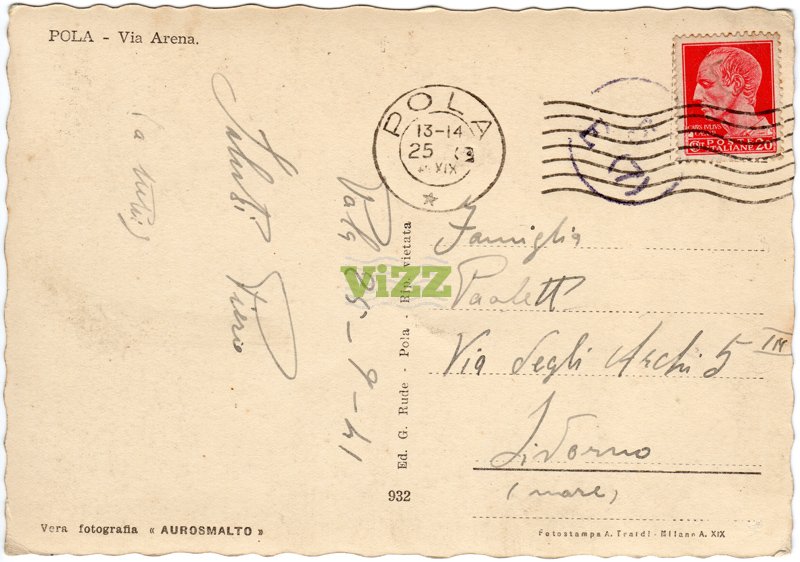 POLA - Via Arena.
Saluti
Piero
Pola 25-9-41
POLA
13-14
25 9
XIX
POSTE
ITALIANE 20
Famiglia
Paoletti
Via degli Archi 5
Livorno
(mare)
Ed. G. Rude - Pola - Rip. vietata
932
ViZZ
Vera fotografia « AUROSMALTO »
Fotostampa A. Traldi - Milano A. XIX